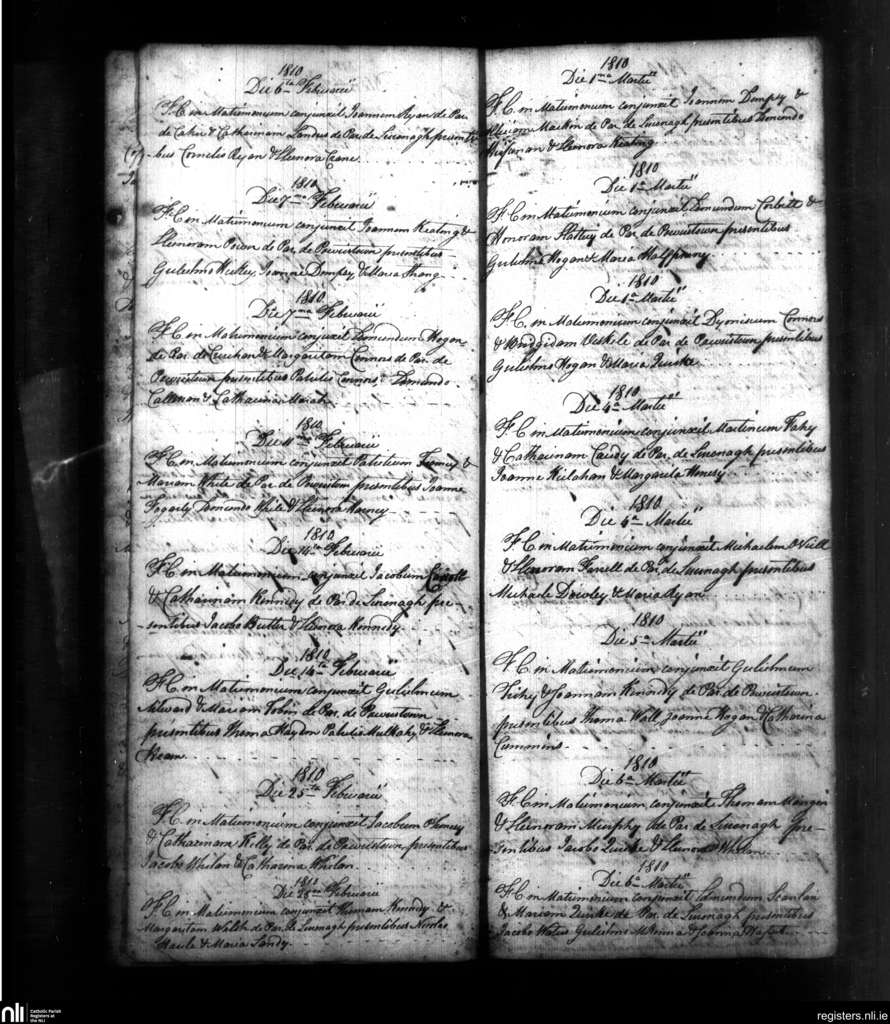 1810
Die 6ta Februarii
F. C. in Matrimonium conjunxit Joannem Ryan de Par.
de Cahir & Catharinam Landers de Par. de Livenagh presenti-
bus Cornelio Ryan & Elenora Crane
1810
Die 7ma Februarii
F. C. in Matrimonium conjunxit Joannem Keating &
Elenoram de Par. de Powerstown presentibus
Gulielmo Joanne Dempsy & Maria
1810
Die 7ma Februarii
F. C. in Matrimonium conjunxit Edmundum Hogan
de Par. de & Margaritam Connors de Par. de
Powerstown presentibus Patritio Connors Edmundo
& Catharina
1810
Die Februarii
F. C. in Matrimonium conjunxit Patritium &
Mariam White de Par. de Powerstown presentibus Joanne
Fogarty Edmundo White & Elenora
1810
Die 14ta Februarii
F. C. in Matrimonium conjunxit Jacobum
& Catharinam Kennedy de Par. de Livenagh pre-
-sentibus Jacobo Butler & Elenora Kennedy
1810
Die 14ta Februarii
F. C. in Matrimonium conjunxit Gulielmum
& Mariam Tobin de Par. de Powerstown
presentibus Thoma Haydon Patritio Mulkahy & Elenora
1810
Die 25ta Februarii
F. C. in Matrimonium conjunxit Jacobum
& Catharinam Kelly de Par. de Powerstown presentibus
Jacobo Whelan & Catharina Whelan
1810
Die Februarii
F. C. in Matrimonium conjunxit Kennedy &
Margaritam Walsh de Par. de Livenagh presentibus
& Maria
1810
Die 1ma Martii
F. C. in Matrimonium conjunxit Joannem Dempsy &
de Par. de Livenagh presentibus Edmundo
& Elenora Keating
1810
Die 1a Martii
F. C. in Matrimonium conjunxit Edmundum Corbett &
Honoram Slattery de Par. de Powerstown presentibus
Gulielmo Hogan & Maria Halfpenny
1810
Die 1a Martii
F. C. in Matrimonium conjunxit Dyonisium Connors
& de Par. de Powerstown presentibus
Gulielmo Hogan & Maria Quirke
1810
Die 4a Martii
F. C. in Matrimonium conjunxit Martinum Fahy
& Catharinam de Par. de Livenagh presentibus
Joanne & Margarita
1810
Die 4a Martii
F. C. in Matrimonium conjunxit Michaelem O Neill
& Elenoram Farrell de Par. de Livenagh presentibus
Michaele & Maria Ryan
1810
Die 5a Martii
F. C. in Matrimonium conjunxit Gulielmum
& Joannam Kennedy de Par. de Powerstown
presentibus Thoma Wall Joanne Hogan & Catharina
Cummins
1810
Die 6a Martii
F. C. in Matrimonium conjunxit Thomam
& Elenoram Murphy de Par. de Livenagh pre-
sentibus Jacobo Quirke & Elenora
1810
Die 6a Martii
F. C. in Matrimonium conjunxit Edmundum Scanlan
& Mariam Quirke de Par. de Livenagh presentibus
Jacobo Gulielmo & Joanna
nli
Catholic Parish
Registers at
the NLI
registers.nli.ie